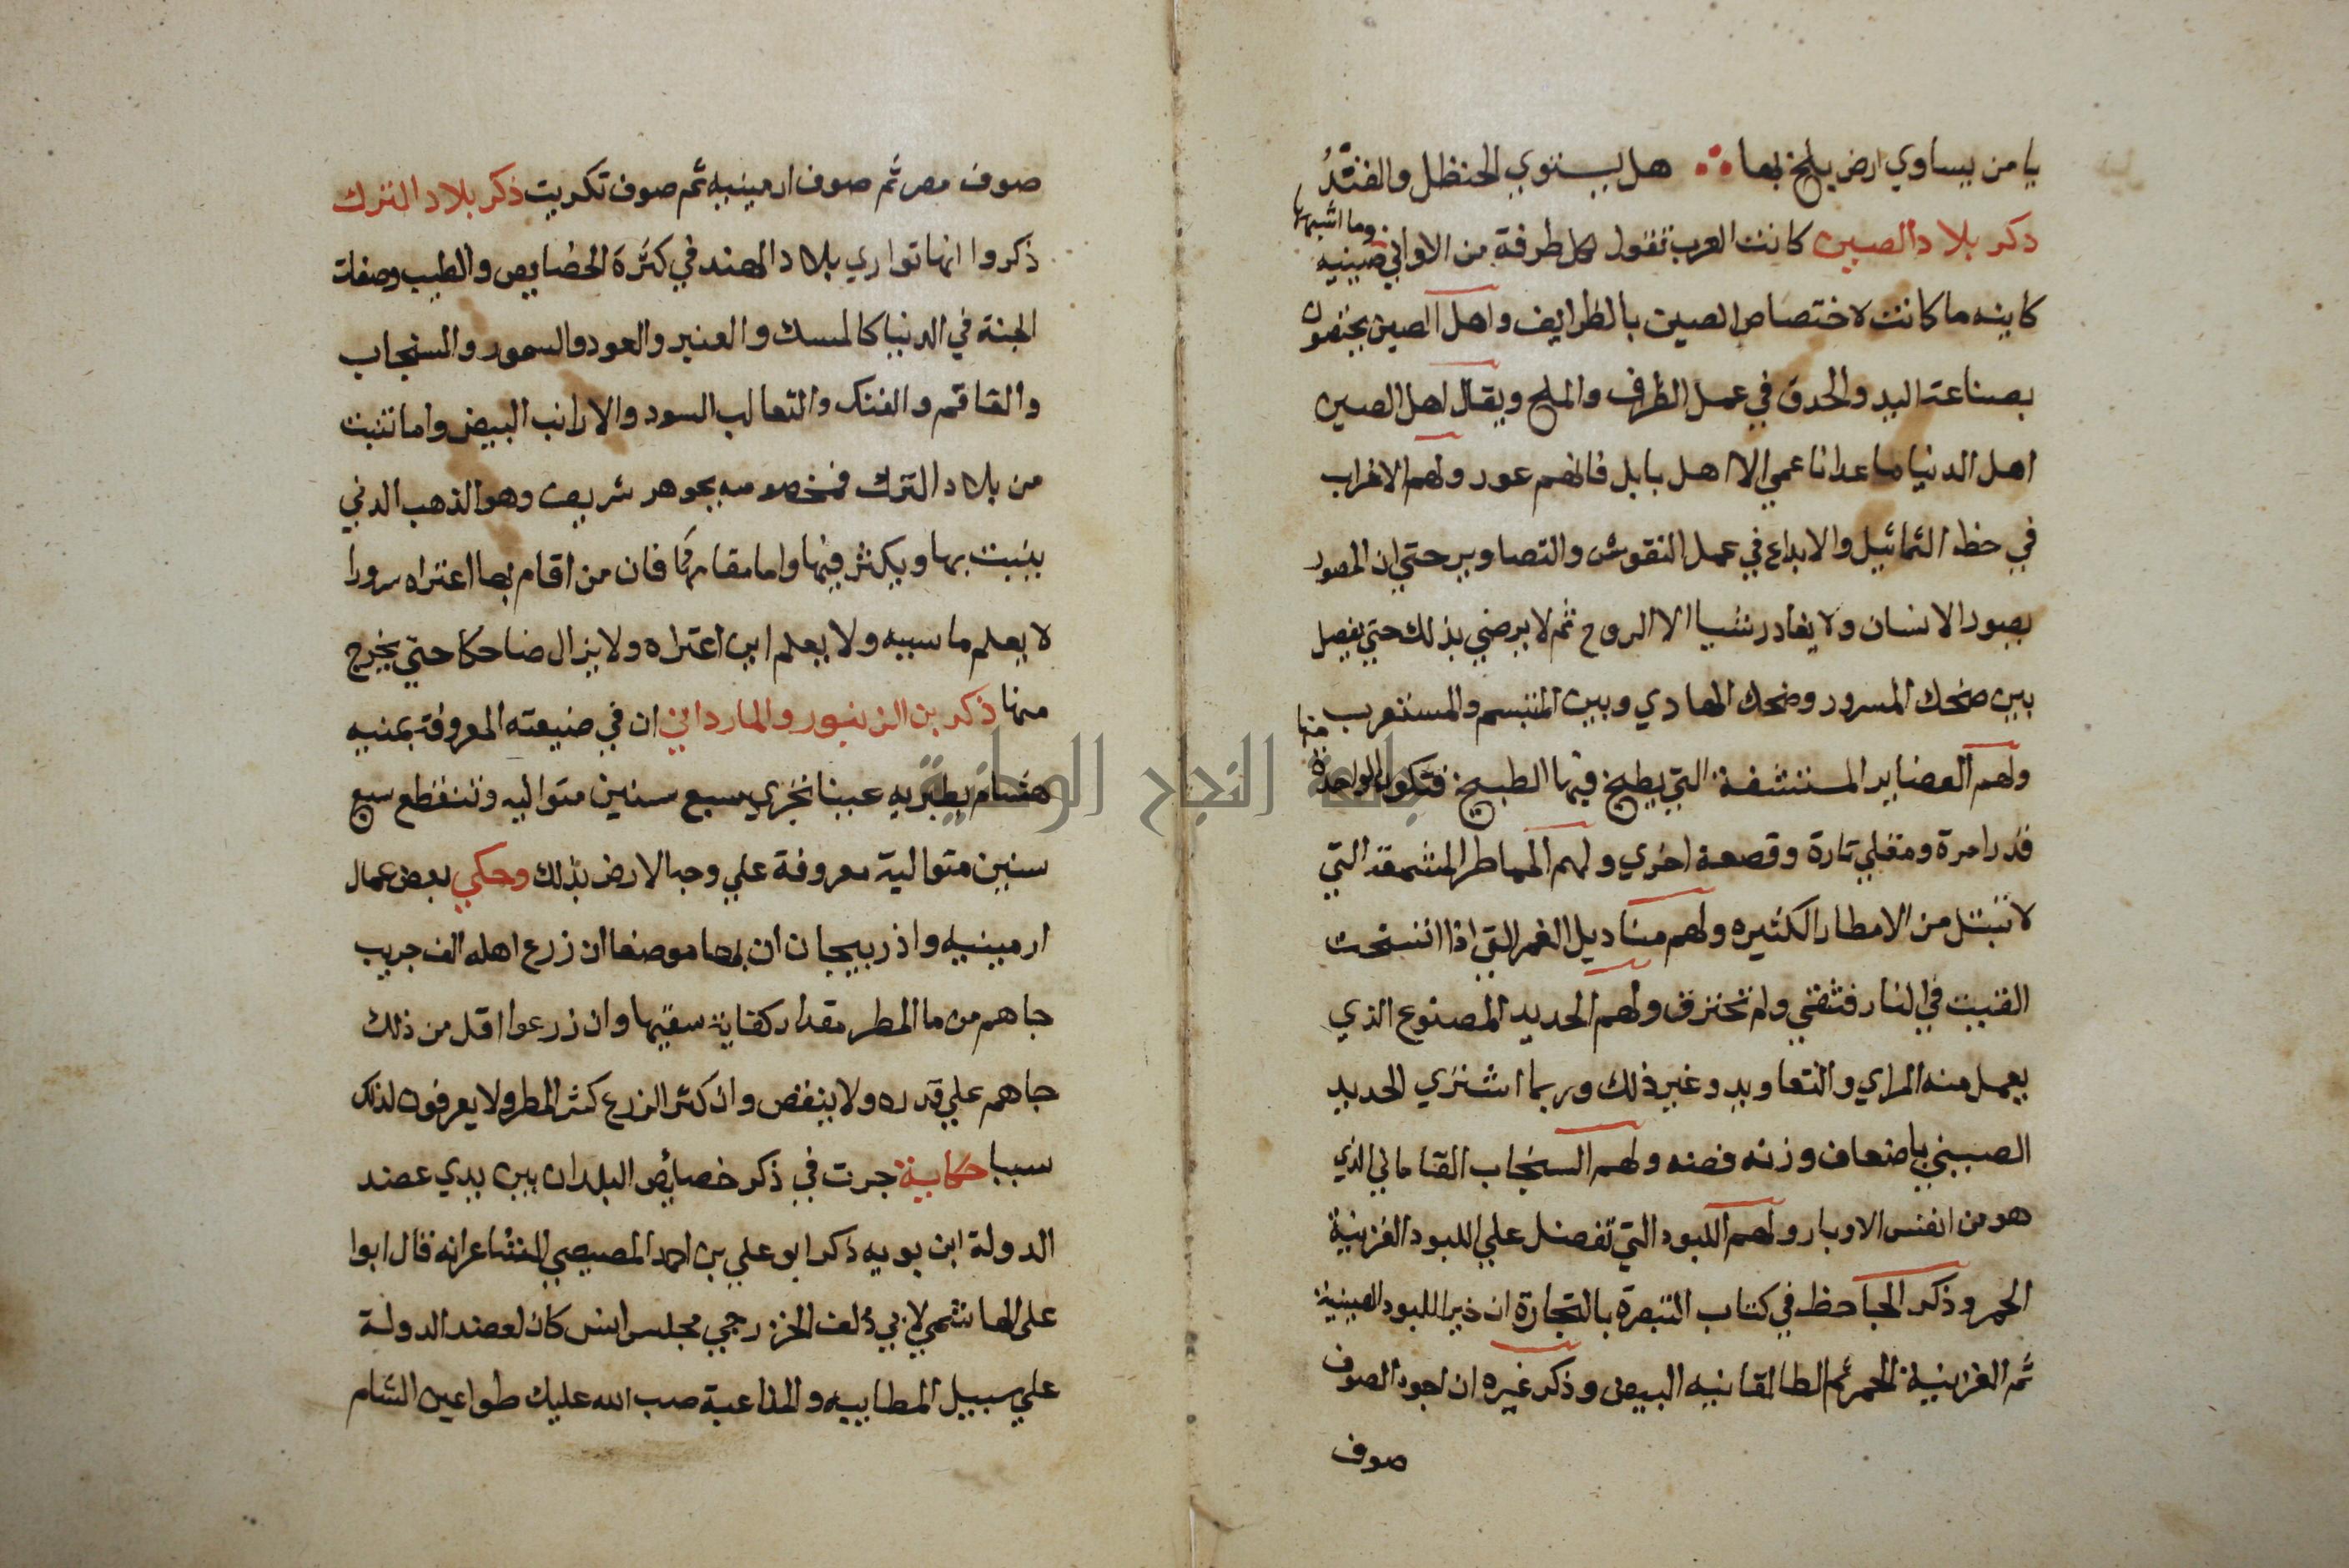 يا من يساوي ارض بلخ بها هل يستوي الحنظل والقند
ذكر بلاد الصين كانت العرب تقول لكل طرفة من الاواني صينيه وما اشبهها
كاينه ما كانت لاختصاص الصين بالظرايف واهل الصين يختصون
بصناعة اليد والحدق في عمل الظرف والملح ويقال اهل الصين
اهل الدنيا ما عدانا عمي الا اهل بابل فانهم عور ولهم الاغراب
في حظ التماثيل والابداع في عمل النقوش والتصاوير حتي ان المصور
يصور الانسان ولا يغادر شيا الا الروح ثم لا يرضي بذلك حتي يفصل
بين ضحك المسرور وضحك الهادي وبين المتبسم والمستغرب
ولهم الغضاير المستشفة التي يطبخ فيها الطبيخ فتكون الواحدة منها
قدرا مرة ومقلي تارة وقصعة اخري ولهم المماطر المشمقة التي
لا تبتل من الامطار الكثيره ولهم مناديل الغمر التي اذا اتسخت
القيت في النار فتنقي ولم تحترق ولهم الحديد المصنوع الذي
يعمل منه المراي والتعاويد وغير ذلك وربما اشتري الحديد
الصيني باضعاف وزنه فضه ولهم السنجاب القاماني الذي
هو من انفس الاوبار ولهم اللبود التي تفضل علي اللبود الغزينية
الحمر وذكر الجاحظ في كتاب التبصرة بالتجارة ان خير اللبود الصينية
ثم الغزينية الحمر ثم الطالقانيه البيض وذكر غيره ان اجود الصوف
صوف
صوف مصر ثم صوف ارمينيه ثم صوف تكريت ذكر بلاد الترك
ذكروا انها تواري بلاد الهند في كثرة الخصايص والطيب وصفات
الجنة في الدنيا كالمسك والعنبر والعود والسمور والسنجاب
والقاقم والفنك والثعالب السود والارانب البيض واما تنبت
من بلاد الترك فمخصوصه بجوهر شريف وهو الذهب الذي
ينبت بها ويكثر فيها واما مقامها فان من اقام بها اعتراه سرورا
لا يعلم ما سببه ولا يعلم اين اعتراه ولا يزال ضاحكا حتي يخرج
منها ذكر بن الزنبور والمارداني ان في ضيعته المعروفة بمنيه
هشام بطبريه عينا تجري سبع سنين متواليه وتنقطع سبع
سنين متوالية معروفة علي وجه الارض بذلك وحكي بعض عمال
ارمينيه واذربيجان ان بها موضعا ان زرع اهله الف جريب
جاهم من ما المطر مقدار كفاية سقيها وان زرعوا اقل من ذلك
جاهم علي قدره ولا ينقص وان كثر الزرع كثر المطر ولا يعرفون لذلك
سببا حكاية جرت في ذكر خصايص البلدان بين يدي عضد
الدولة ابن بويه ذكر ابو علي بن احمد المصيصي الشاعر انه قال ابوا
علي الهاشمي لابي دلف الخزرجي مجلس انس كان لعضد الدولة
علي سبيل المطايبه والمداعبة صب الله عليك طواعين الشام
جامعة النجاح الوطنية